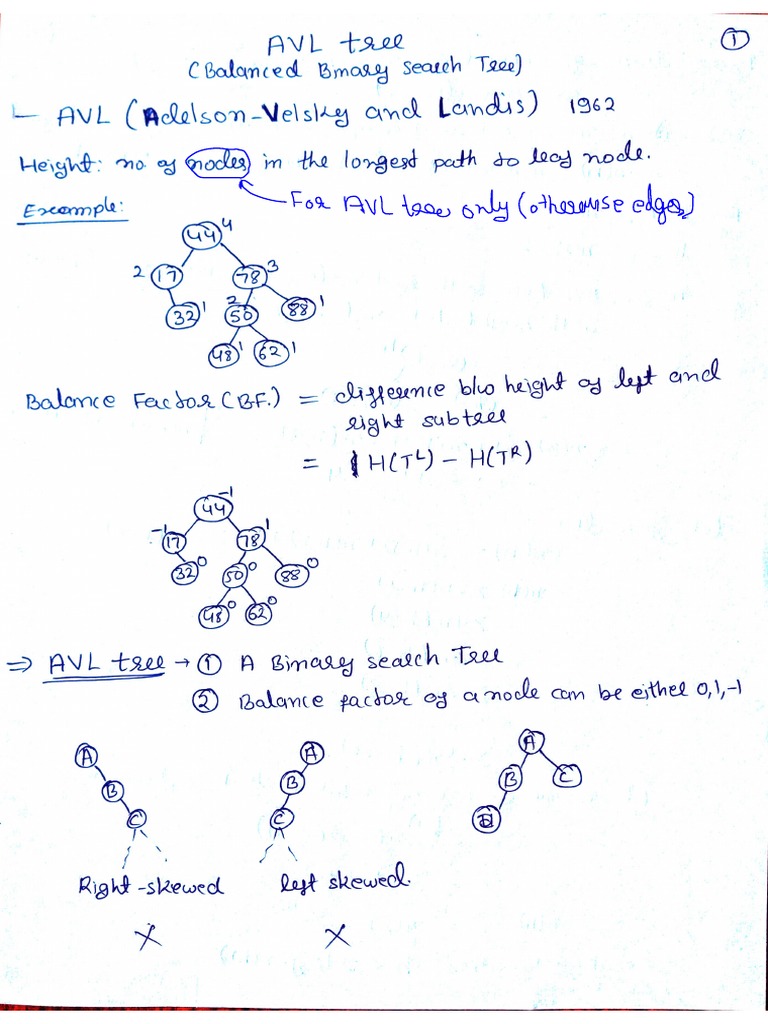 ①
AVL tree
(Balanced Binary Search Tree)
AVL (Adelson-Velsky and Landis) 1962
Height: no. of nodes in the longest path to leaf node.
For AVL tree only (otherwise edges)
Example:
44 4
2 17 78 3
32 1 2 50 88 1
48 1 62 1
Balance Factor (BF.) = difference b/w height of left and
right subtree
= H(T^L) - H(T^R)
44 -1
-1 17 78 1
32 0 50 0 88 0
48 0 62 0
⇒ AVL tree → ① A Binary search Tree
② Balance factor of a node can be either 0,1,-1
A A A
B B B C
C C D
Right-skewed left skewed.
X X